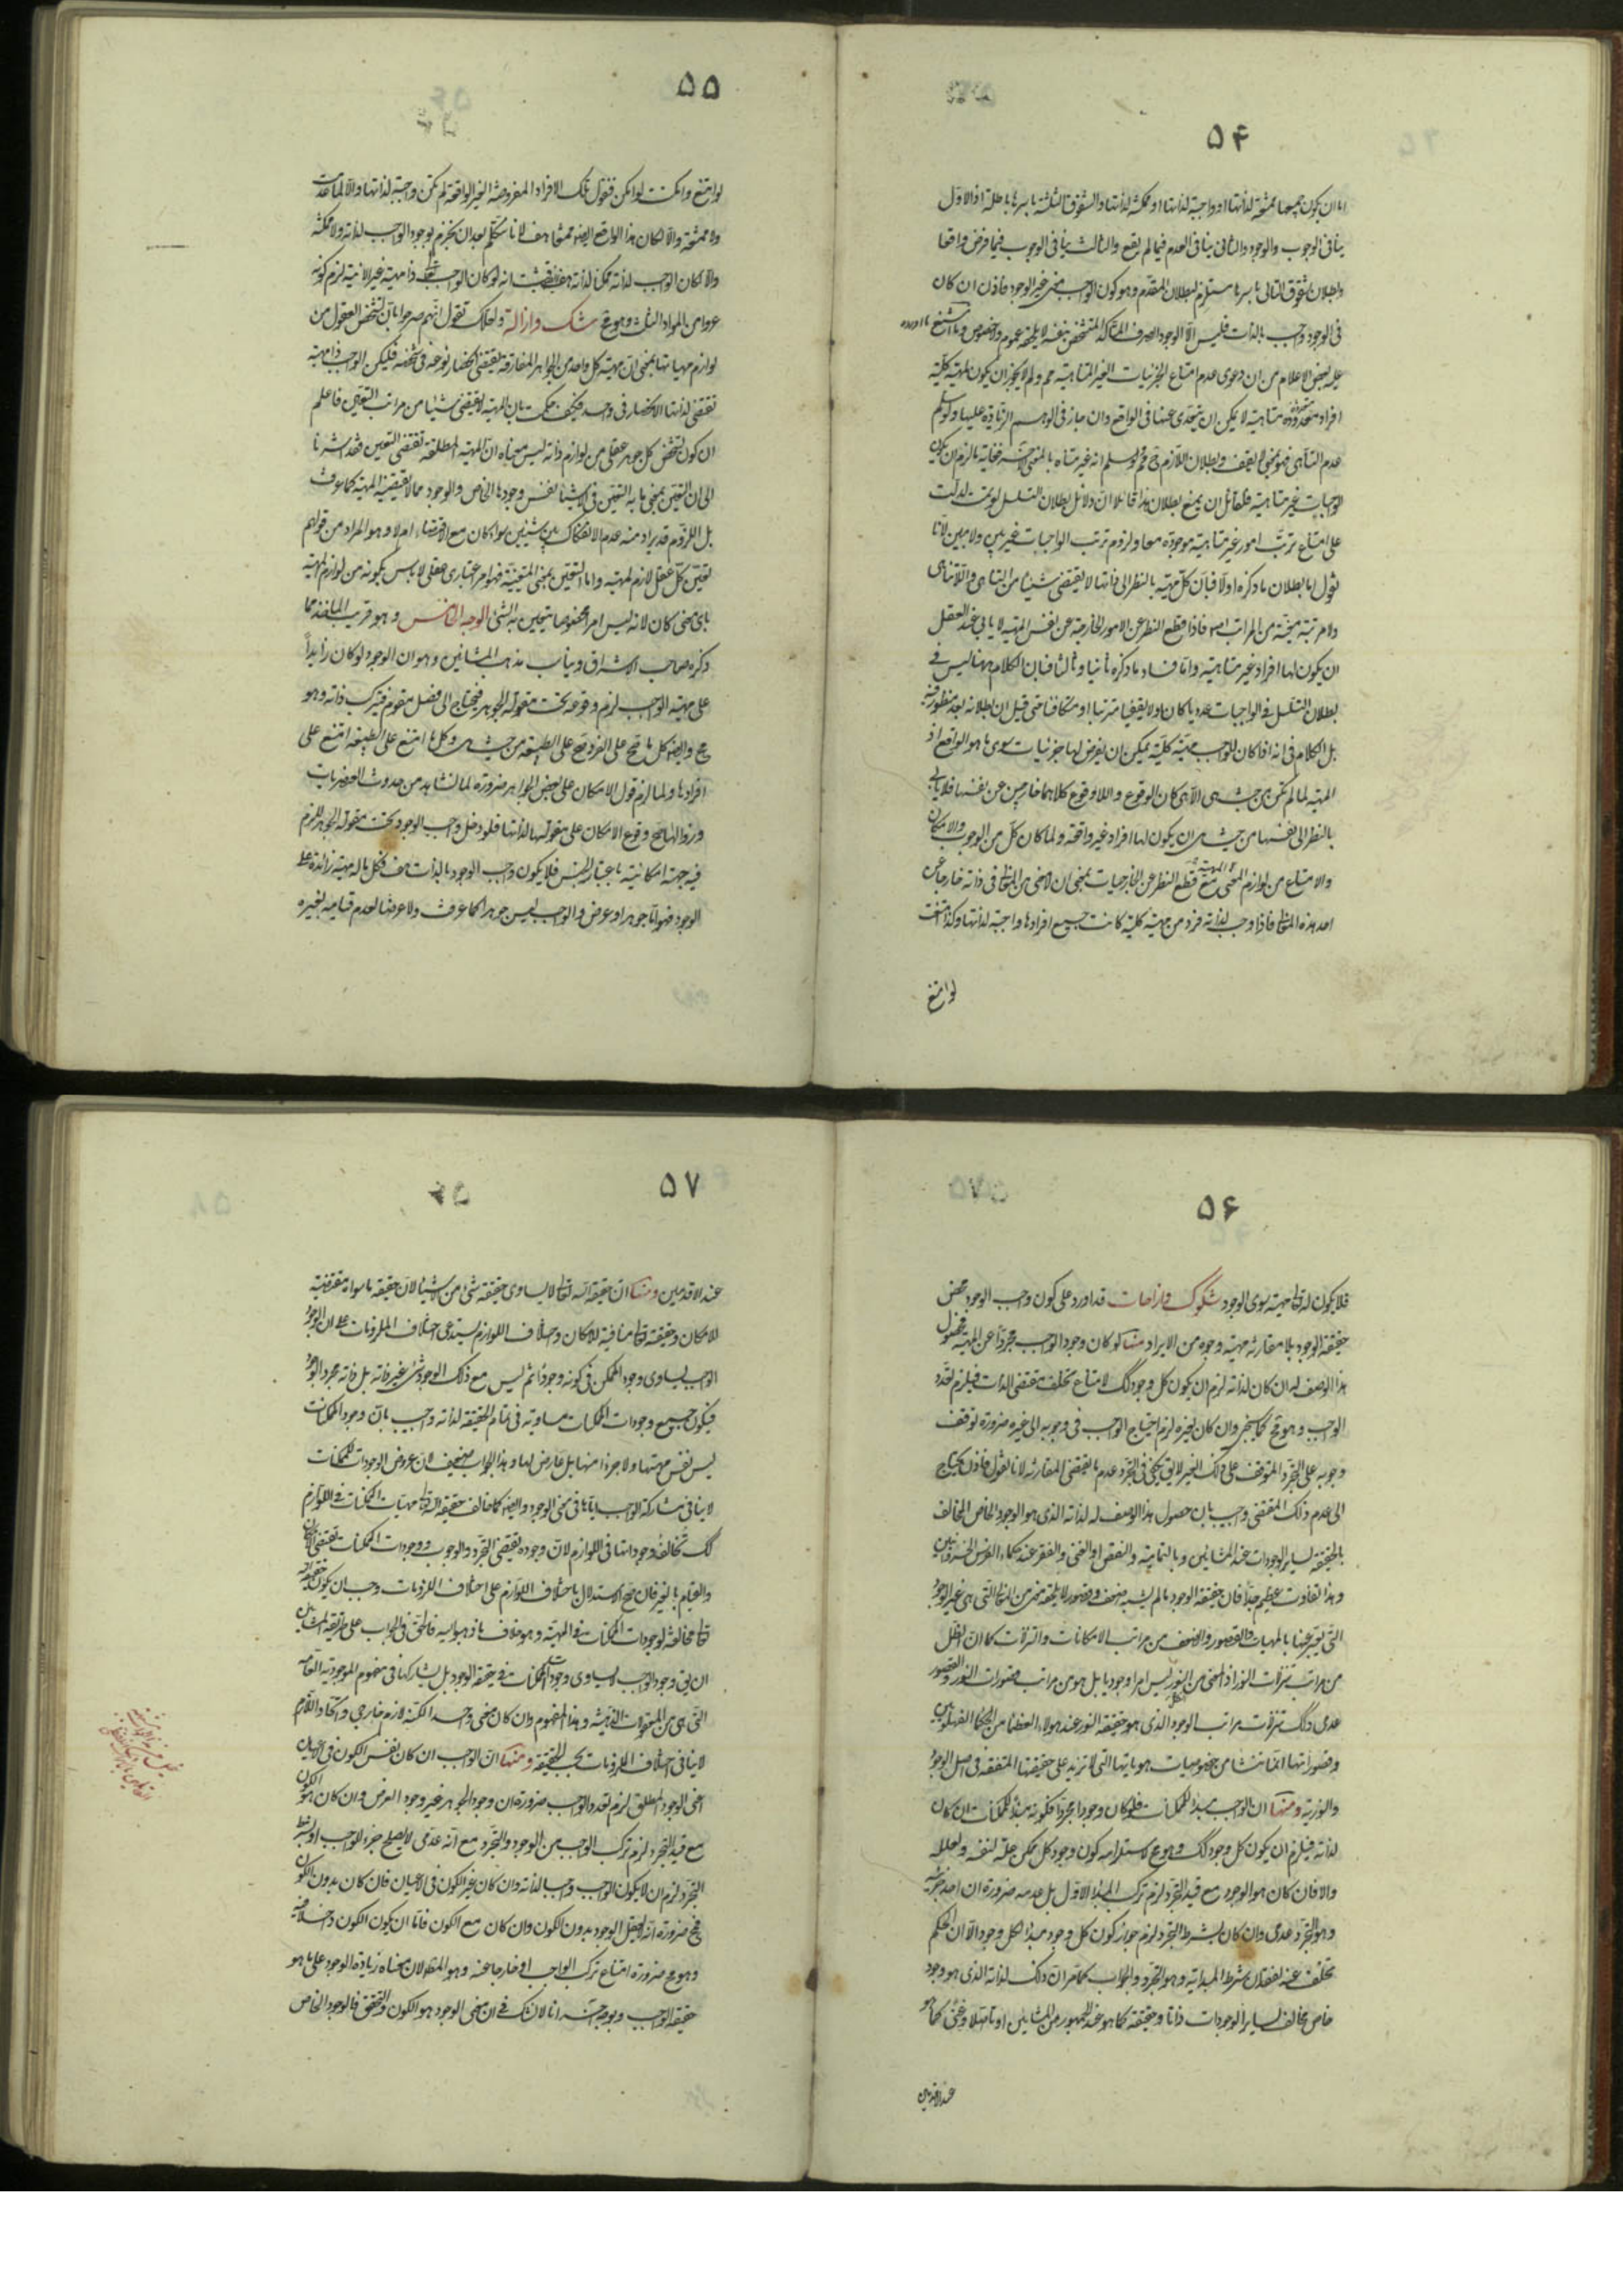 ۵۴
اما ان يكون جميعها ممتنعة لذاتها او واجبة لذاتها او ممكنة لذاتها والشقوق الثلثة باسرها باطلة اذ الاول
ينافى الوجوب والوجود والثانى ينافى العدم فيما لم يقع والثالث ينافى الوجوب فيما فرض واقعا
وبطلان شقوق التالى باسرها مستلزم لبطلان المقدم وهو كون الواجب معنى غير الوجود فاذن ان كان
فى الوجود واجب بالذات فليس الا الوجود الصرف المتأكد المتشخص بنفسه لا يلحقه عموم ولا خصوص وما شنع
عليه بعض الاعلام من ان دعوى عدم امتناع الجزئيات الغير المتناهية مم ولم لا يجوز ان يكون لمهية كلية
افراد معدودة متناهية لا يمكن ان يتعدى عنها فى الواقع وان جاز فى الوهم الزيادة عليها ولو سلم
عدم التناهى فهو بمعنى لا يقف وبطلان اللازم ح مم ولو سلم انه غير متناه بالمعنى الاخر فغايته ما لزم ان يكون
الواجبات غير متناهية فلقائل ان يمنع بطلان هذا قائلا ان دلائل بطلان التسلسل لو تمت لدلت
على امتناع ترتب امور غير متناهية موجودة معا ولزوم ترتب الواجبات غير بين ولا مبين لانا
نقول اما بطلان ما ذكره اولا فبان كل مهية بالنظر الى ذاتها لا يقتضى شيئا من التناهى واللاتناهى
ولا مرتبة معينة من المراتب اصلا فاذا قطع النظر عن الامور الخارجة عن نفس المهية لا يابى عند العقل
ان يكون لها افراد غير متناهية واما فساد ما ذكره ثانيا وثالثا فبان الكلام ههنا ليس فى
بطلان التسلسل فى الواجبات عدديا كان او لا يقفيا مترتبا او متكافئا حتى قيل ان بطلانه بعد منظور فيه
بل الكلام فى انه اذا كان للواجب مهية كلية يمكن ان يفرض لها جزئيات سوى ما هو الواقع اذ
المهية لما لم تكن من حيث هى الا هى كان الوقوع واللاوقوع كلاهما خارجين عن نفسها فلا يابى
بالنظر الى نفسها من حيث هى ان يكون لها افراد غير واقعة ولما كان كل من الوجوب والامكان
والامتناع من لوازم المهية مع قطع النظر عن الخارجيات بمعنى ان لا معنى من المعانى فى ذاته خارجا عن
احد هذه المعانى فاذا وجب لذاته فرد من مهية كلية كانت جميع افرادها واجبة لذاتها وكذا امتنعت
لو امتنع
۵۵
لو امتنع وامكنت لو امكن فنقول تلك الافراد المفروضة الغير الواقعة لم تكن واجبة لذاتها والا لما عدمت
ولا ممتنعة والا لكان هذا الواقع ايضا ممتنعا هف لانا نتكلم بعد ان نجزم بوجود الواجب لذاته ولا ممكنة
والا لكان الواجب لذاته ممكن لذاته هف فثبت انه لو كان الواجب تعالى ذا مهية غير الانية لزم كونه
عروا من المواد الثلث وهو مح شك وازالة ولعلك تقول انهم صرحوا بان تشخص العقول من
لوازم مهياتها بمعنى ان مهية كل واحد من الجواهر المفارقة يقتضى انحصار نوعه فى شخصه فليكن الواجب ذا مهية
تقتضى لذاتها الانحصار فى واحد فكيف حكمت بان المهية لا يقتضى شيئا من مراتب التعين فاعلم
ان كون تشخص كل جوهر عقلى من لوازم ذاته ليس معناه ان المهية المطلقة تقتضى التعين فقد اشرنا
الى ان التعين بمعنى ما به التعين فى الاشيا نفس وجودها الخاص والوجود مما لا تقتضيه المهية كما عرفت
بل اللزوم قد يراد منه عدم الانفكاك بين شيئين سواء كان مع الاقتضاء ام لا وهو المراد من قولهم
تعين كل عقل لازم لمهيته واما التعين بمعنى المتعينية فهو امر اعتبارى عقلى لا باس بكونه من لوازم المهية
باى معنى كان لانه ليس امرا مخصوصا يتعين به الشئ الوجه الخامس وهو قريب الماخذ مما
ذكره صاحب الاشراق ويناسب مذهب المشائين وهو ان الوجود لو كان زايداً
على مهية الواجب لزم وقوعه تحت مقولة الجوهر فيحتاج الى فصل مقوم فيتركب ذاته وهو
مح وايضا كل ما صح على الفرد صح على الطبيعة من حيث هى وكل ما امتنع على الطبيعة امتنع على
افرادها ولما لزم قول الامكان على بعض الجواهر ضرورة لما نشاهد من حدوث العنصريات
وزوالها صح وقوع الامكان على مقولتها لذاتها فلو دخل واجب الوجود تحت مقولة الجوهر للزم
فيه جهة امكانية باعتبار الجنس فلا يكون واجب الوجود بالذات هف فكل ما له مهية زائدة على
الوجود فهو اما جوهر او عرض والواجب ليس جوهر كما عرفت ولا عرضا لعدم قيامه بغيره
۵۶
فلا يكون له تعالى مهية سوى الوجود شكوك وازاحات قد اورد على كون واجب الوجود محض
حقيقة الوجود بلا مقارنة مهية وجوه من الايراد منها لو كان وجود الواجب مجرداً عن المهية فحصول
هذا الوصف له ان كان لذاته لزم ان يكون كل وجود كك لامتناع تخلف مقتضى الذات فيلزم تعدد
الواجب وهو مح كما سيجئ وان كان لغيره لزم احتياج الواجب فى وجوبه الى غيره ضرورة توقف
وجوبه على التجرد المتوقف على ذلك الغير لا يق يكفى فى التجرد عدم ما يقتضى المقارنة لانا نقول فاذن يحتاج
الى عدم ذلك المقتضى واجيب بان حصول هذا الوصف له لذاته الذى هو الوجود الخاص المخالف
بالحقيقة لساير الوجودات عند المشائين وبالتمامية والنقص او الغنى والفقر عند حكماء الفرس الخسروانيين
وهذا تفاوت عظيم جدا فان حقيقة الوجود ما لم يشبه ضعف وقصور لا يلحقه معنى من المعانى التى هى غير الوجود
التى يعبر عنها بالمهيات والقصور والضعف من مراتب الامكانات والتنزلات كما ان الظل
من مراتب تنزلات النور اذ المعنى من النور ليس امرا وجوديا بل هو من مراتب قصورات النور والقصور
عدمى وكذلك تنزلات مراتب الوجود الذى هو حقيقة النور عند هولاء العظماء من الحكماء الفهلويين
وقصوراتها انما تنشا من خصوصيات هوياتها التى لا تزيد على حقيقتها المتفقة فى اصل الوجود
والنورية ومنها ان الواجب مبدأ للممكنات فلو كان وجودا مجردا فكونه مبدأ للممكنات ان كان
لذاته فيلزم ان يكون كل وجود كك وهو مح لاستلزامه كون وجود كل ممكن علة لنفسه ولعلله
والا فان كان هو الوجود مع قيد التجرد لزم تركب المبدأ الاول بل عدمه ضرورة ان احد جزئيه
وهو التجرد عدمى وان كان بشرط التجرد لزم جواز كون كل وجود مبدأ لكل وجود الا ان الحكم
تخلف عنه لفقدان شرط المبدائية وهو التجرد والجواب كما مر ان ذلك لذاته الذى هو وجود
خاص مخالف لساير الوجودات ذاتا وحقيقة كما هو عند الجمهور من المشائين او تاصلا وغنى كما هو
عند الاقدمين
۵۷
عند الاقدمين ومنها ان حقيقة الله تعالى لا يساوى حقيقة شئ من الاشيا لان حقيقة ما سواه مقتضية
للامكان وحقيقته تعالى منافية للامكان واختلاف اللوازم يستدعى اختلاف الملزومات على ان الوجود
الواجب يساوى وجود الممكن فى كونه وجوداً ثم ليس مع ذلك الوجود شئ غير ذاته بل ذاته مجرد الوجود
فيكون جميع وجودات الممكنات مساوية فى تمام الحقيقة لذاته واجيب بان وجود الممكنات
ليس نفس مهيتها ولا جزءا منها بل عارض لها وهذا الجواب ضعيف لان عروض الوجودات للممكنات
لا ينافى مشاركة الواجب اياها فى معنى الوجود وايضا كما خالف حقيقة الله تعالى مهيات الممكنات فى اللوازم
كك تخالف وجوداتها فى اللوازم لان وجوده يقتضى التجرد والوجوب ووجودات الممكنات تقتضى الامكان
والقيام بالغير فان صح الاستدلال باختلاف اللوازم على اختلاف الملزومات وجب ان يكون حقيقته
تعالى مخالفة لوجودات الممكنات فى المهية وهو خلاف ما ذهبوا اليه فالحق فى الجواب على طريقة المشائين
ان يق وجود الواجب لا يساوى وجود الممكنات فى حقيقة الوجود بل يشاركها فى مفهوم الموجودية العامة
التى هى من المعقولات الثانية وهذا المفهوم وان كان معنى واحدا لكنه لازم خارجى واتحاد اللازم
لا ينافى اختلاف الملزومات بحسب الحقيقة ومنها ان الواجب ان كان نفس الكون فى الاعيان
اعنى الوجود المطلق لزم تعدد الواجب ضرورة ان وجود الجوهر غير وجود العرض وان كان هو الكون
مع قيد التجرد لزم تركب الواجب من الوجود والتجرد مع انه عدمى لا يصلح جزء للواجب او بشرط
التجرد لزم ان لا يكون الواجب واجبا لذاته وان كان غير الكون فى الاعيان فان كان بدون الكون
فمح ضرورة انه لا يعقل الوجود بدون الكون وان كان مع الكون فاما ان يكون الكون داخلا فيه
وهو مح ضرورة امتناع تركب الواجب او خارجا عنه وهو المطلوب لان معناه زيادة الوجود على ما هو
حقيقة الواجب وبوجه آخر انا لا نشك فى ان معنى الوجود هو الكون والتحقق فالوجود الخاص